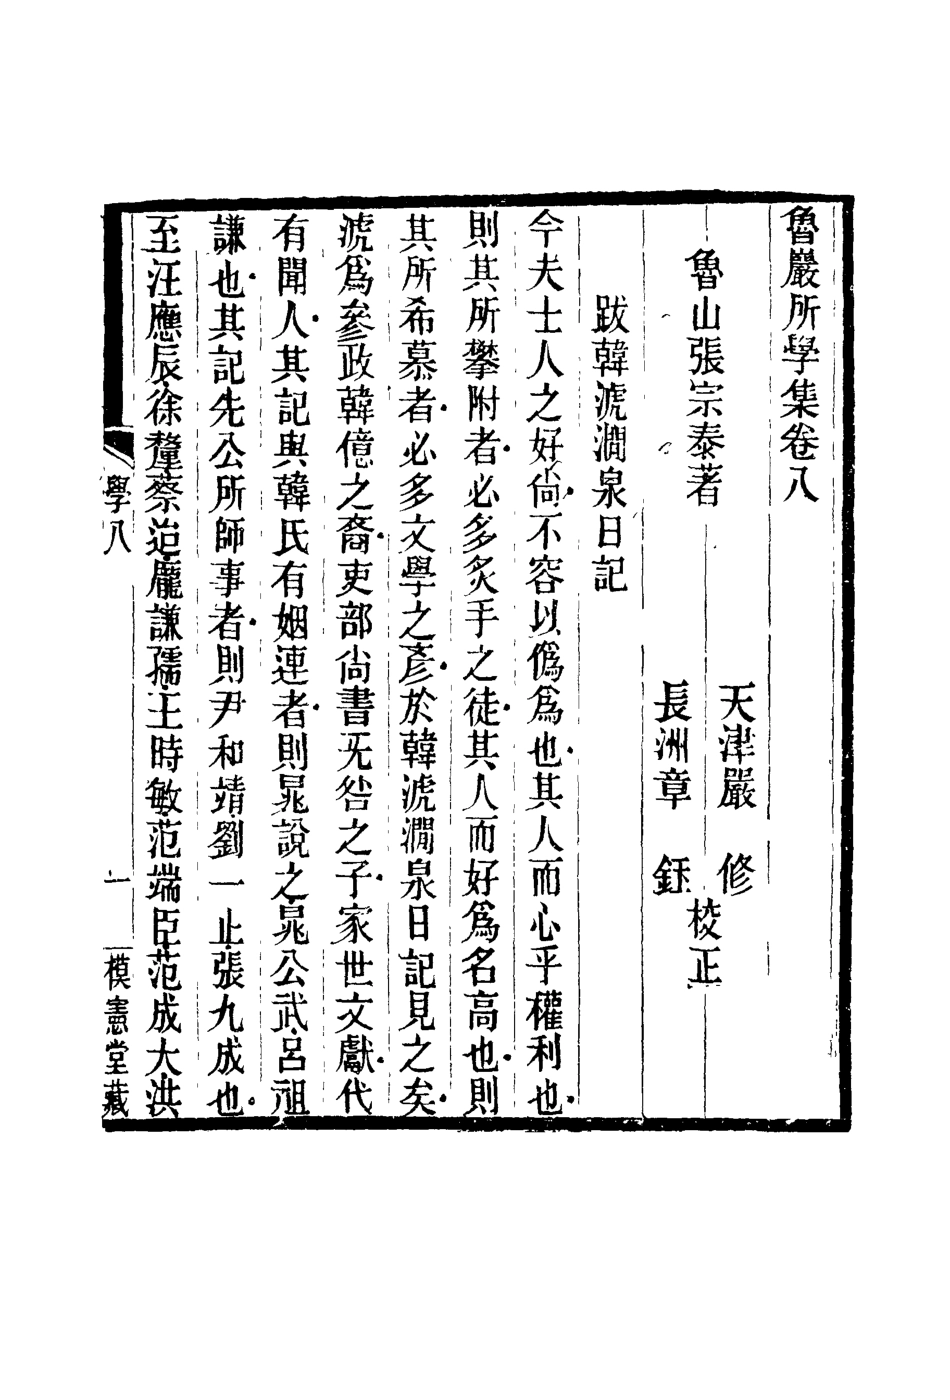 魯巖所學集卷八
魯山張宗泰著
天津嚴　修
長洲章　鈺
校正
跋韓淲澗泉日記
今夫士人之好尙不容以僞爲也其人而心乎權利也
則其所攀附者必多炙手之徒其人而好爲名高也則
其所希慕者必多文學之彥於韓淲澗泉日記見之矣
淲爲參政韓億之裔吏部尙書旡咎之子家世文獻代
有聞人其記與韓氏有姻連者則晁說之晁公武呂祖
謙也其記先公所師事者則尹和靖劉一止張九成也
至汪應辰徐𨤲蔡迨龐謙孺王時敏范端臣范成大洪
學八
一
模憲堂藏